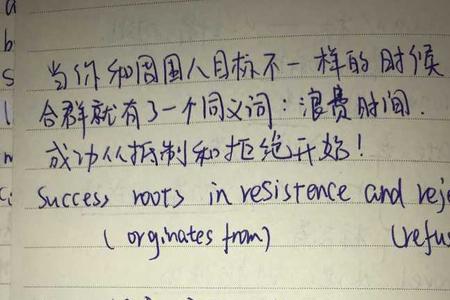 当你和周围人目标不一样的时候
合群就有了一个同义词：浪费时间.
成功从抵制和拒绝开始！
Success roots in resistence and reje
( orginates from) (refus